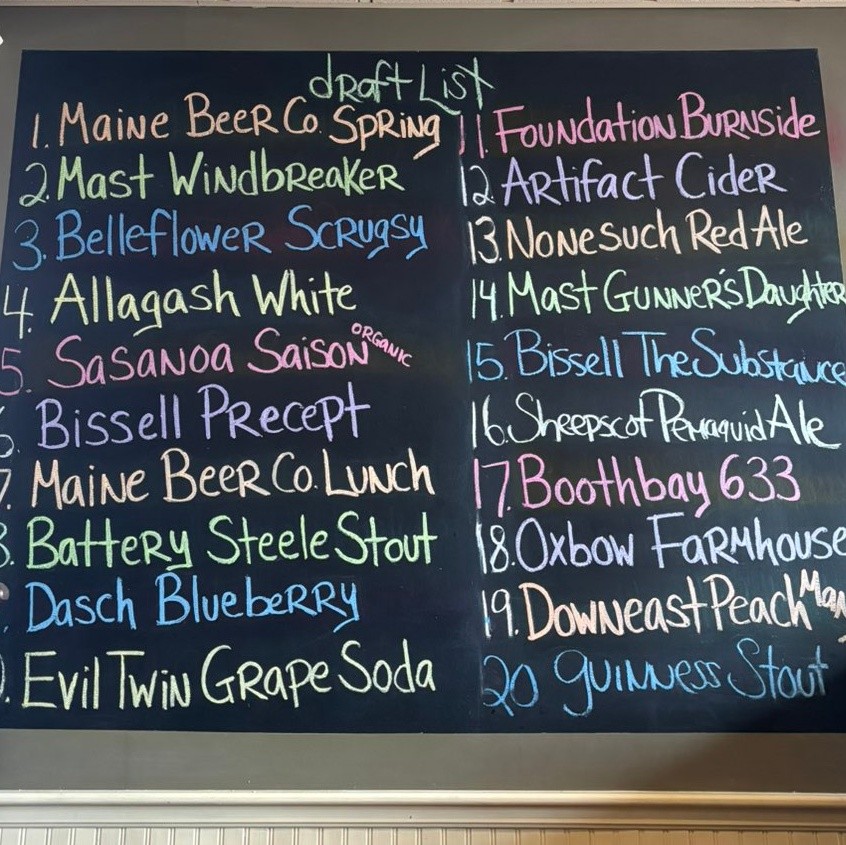 draft List
1. Maine Beer Co. Spring
2. Mast Windbreaker
3. Belleflower Scrugsy
4. Allagash White
5. Sasanoa Saison ORGANIC
6. Bissell Precept
7. Maine Beer Co. Lunch
8. Battery Steele Stout
Dasch Blueberry
Evil Twin Grape Soda
11. Foundation Burnside
12. Artifact Cider
13. Nonesuch Red Ale
14. Mast Gunner's Daughter
15. Bissell The Substance
16. Sheepscot Pemaquid Ale
17. Boothbay 633
18. Oxbow Farmhouse
19. Downeast Peach Man
20 guinness Stout